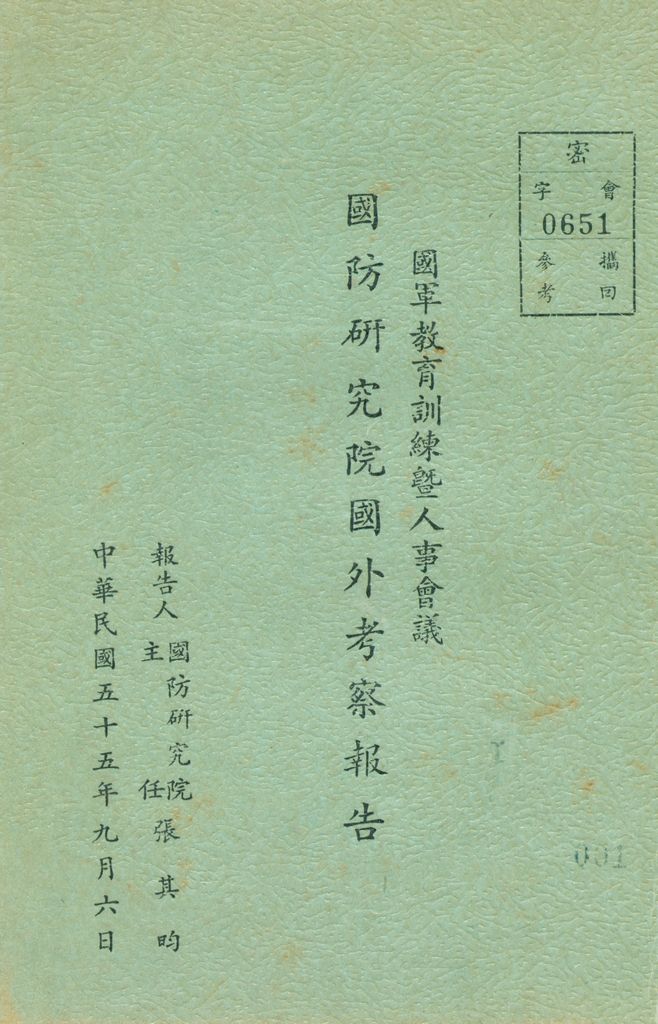 密
會字
0651
攜回
參考
國軍教育訓練暨人事會議
國防研究院國外考察報告
報告人 國防研究院主任 張其昀
中華民國五十五年九月六日